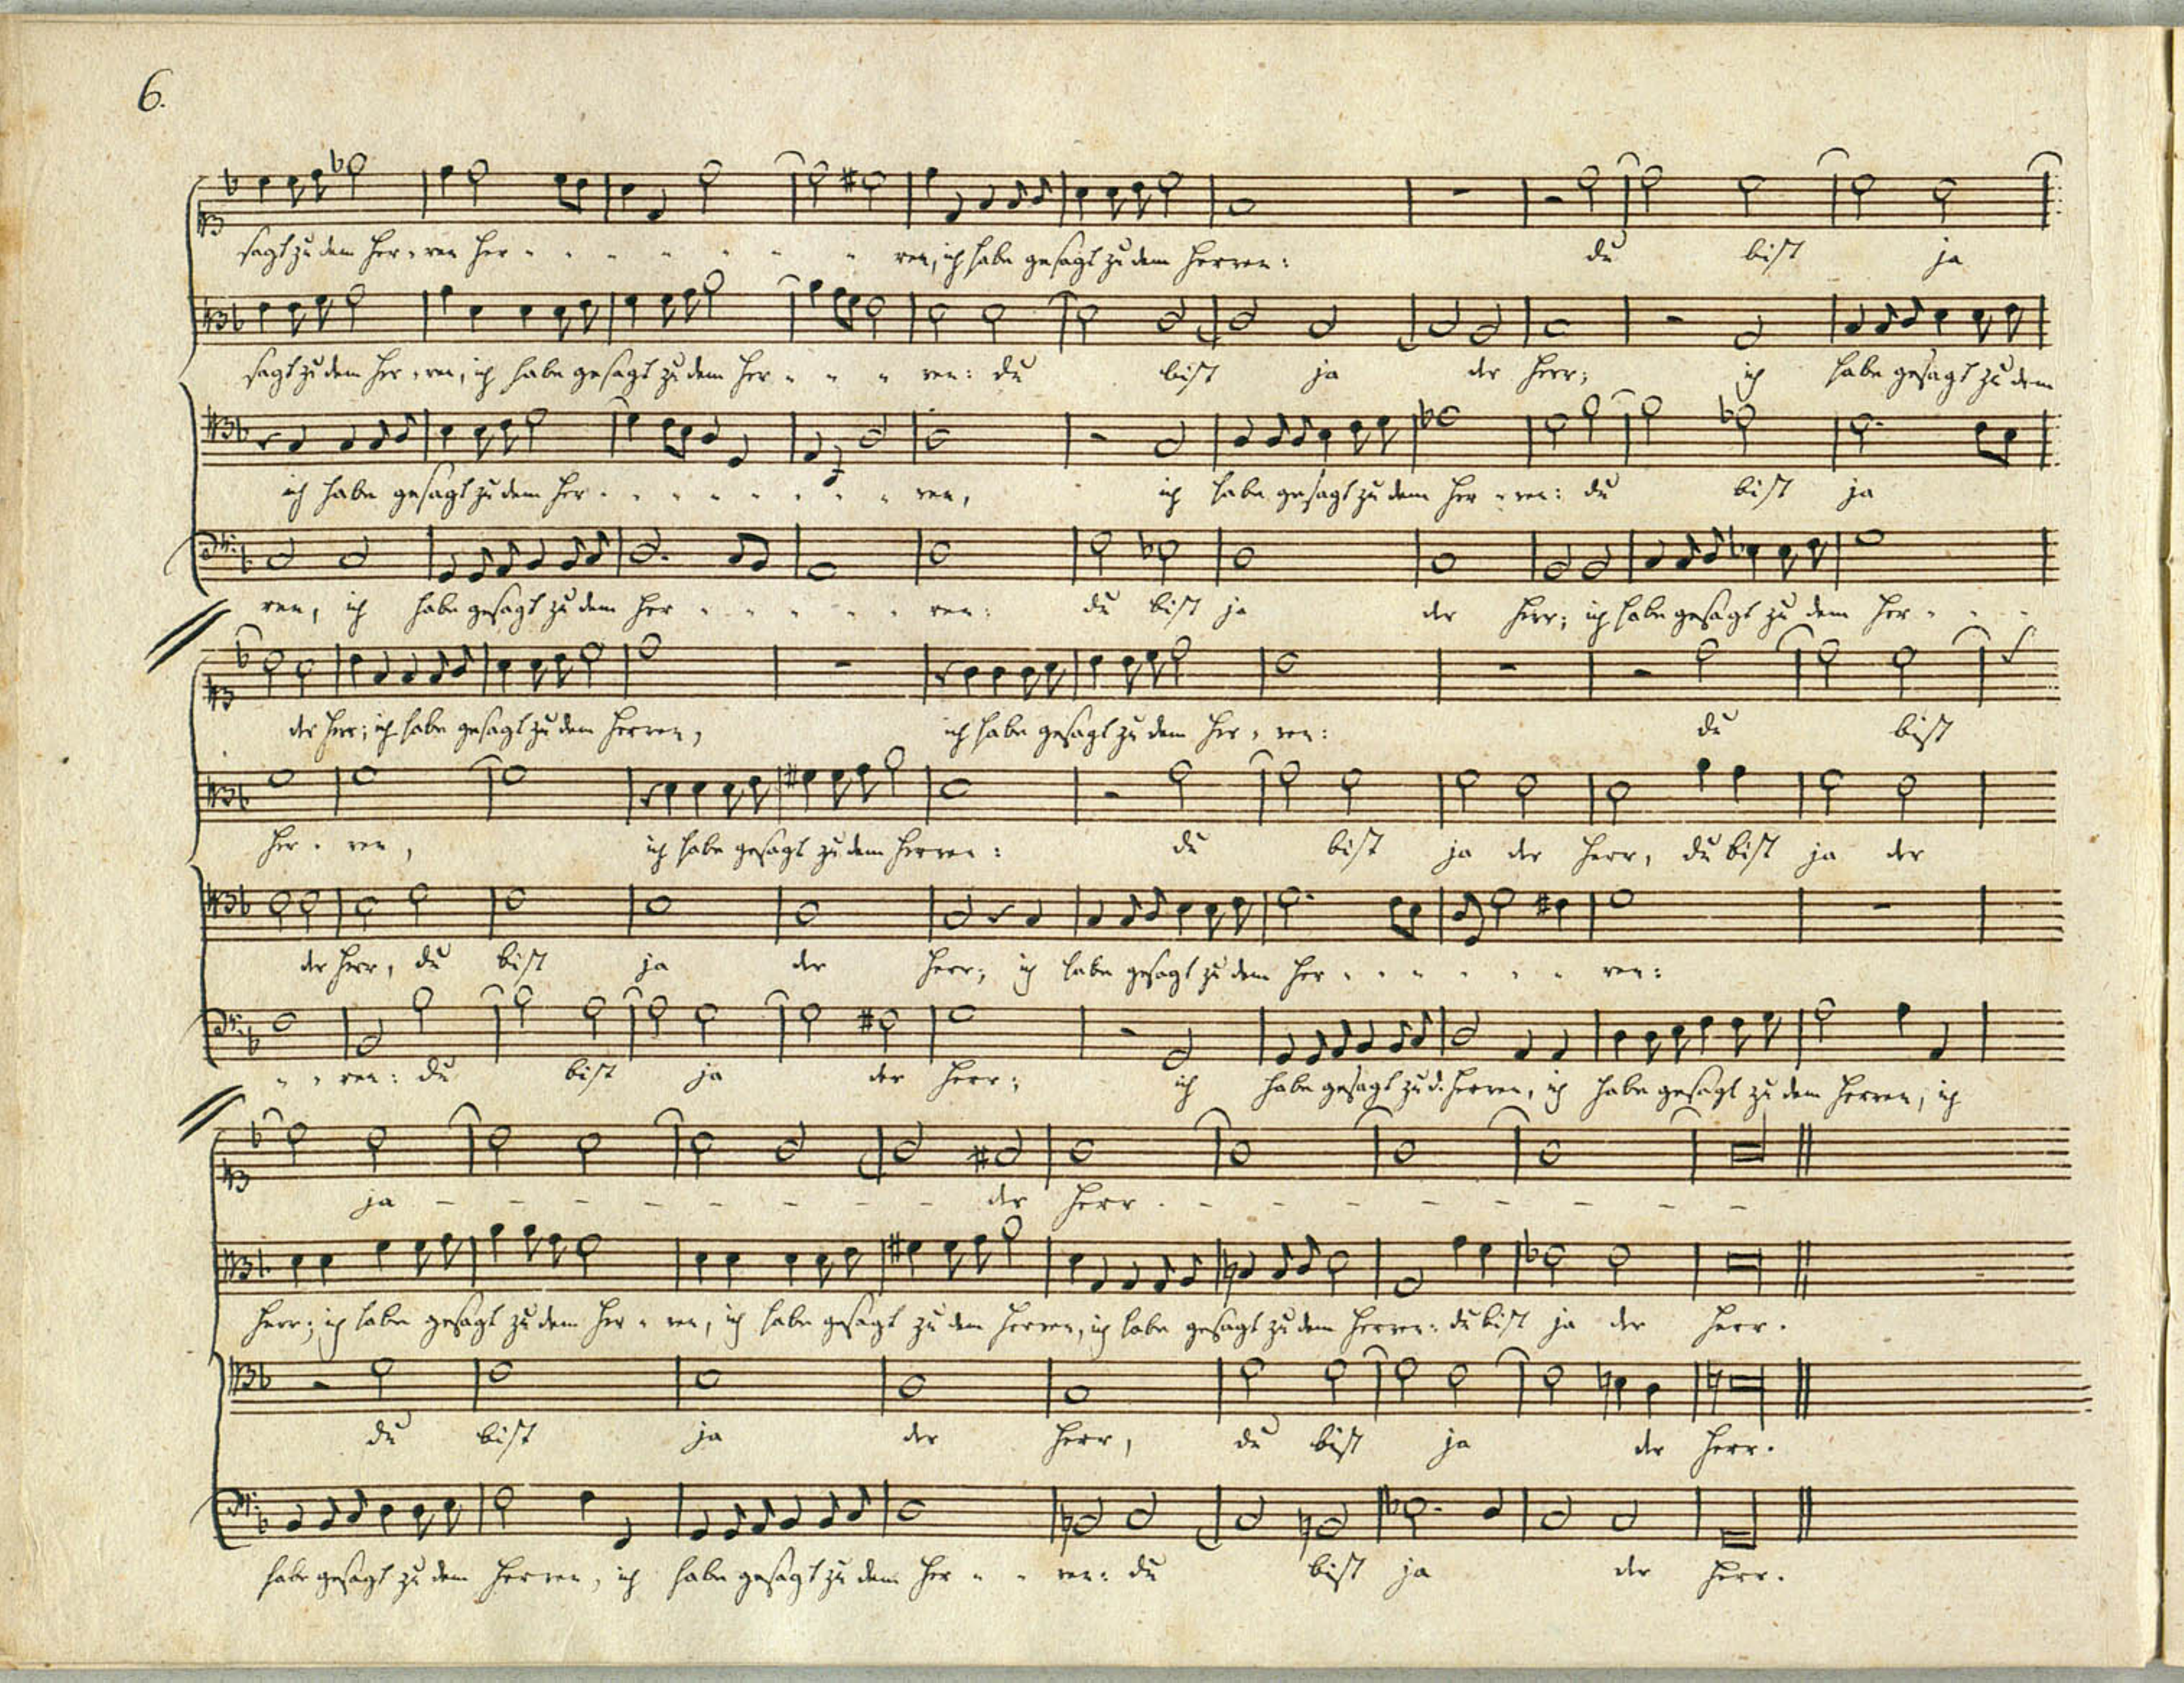 6.
sagt zu dem Her-ren Her - - - - - - - ren, ich habe gesagt zu dem Herren: du bist ja
sagt zu dem Her-ren, ich habe gesagt zu dem Her - - - ren: du bist ja der Herr; ich habe gesagt zu dem
ich habe gesagt zu dem Her - - - - - - - - ren, ich habe gesagt zu dem Her-ren: du bist ja
ren, ich habe gesagt zu dem Her - - - - - - ren: du bist ja der Herr; ich habe gesagt zu dem Her - - -
der Herr; ich habe gesagt zu dem Herren, ich habe gesagt zu dem Her-ren: du bist
Her-ren, ich habe gesagt zu dem Herren: du bist ja der Herr, du bist ja der
der Herr, du bist ja der Herr; ich habe gesagt zu dem Her - - - - - - ren:
- - ren: du bist ja der Herr; ich habe gesagt zu d. Herren, ich habe gesagt zu dem Herren, ich
ja - - - - - - - - der Herr. - - - - - - - -
Herr; ich habe gesagt zu dem Her-ren, ich habe gesagt zu dem Herren, ich habe gesagt zu dem Herren: du bist ja der Herr.
du bist ja der Herr, du bist ja der Herr.
habe gesagt zu dem Herren, ich habe gesagt zu dem Her - - ren: du bist ja der Herr.